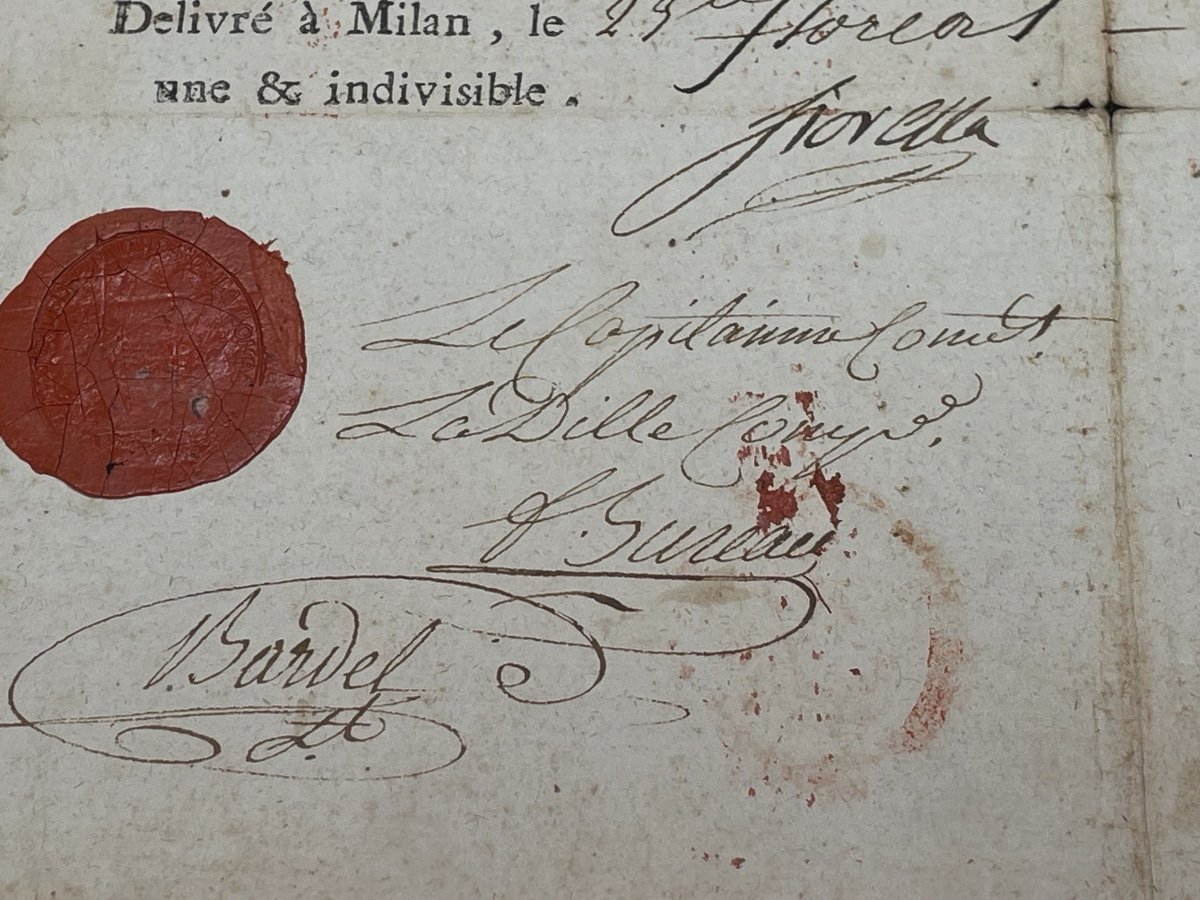 Delivré à Milan, le 23 floreal
une & indivisible.
fiorella
Le Capitainne Comdt.
La Ditte Comp.e
Bureau
Bardel
Lt